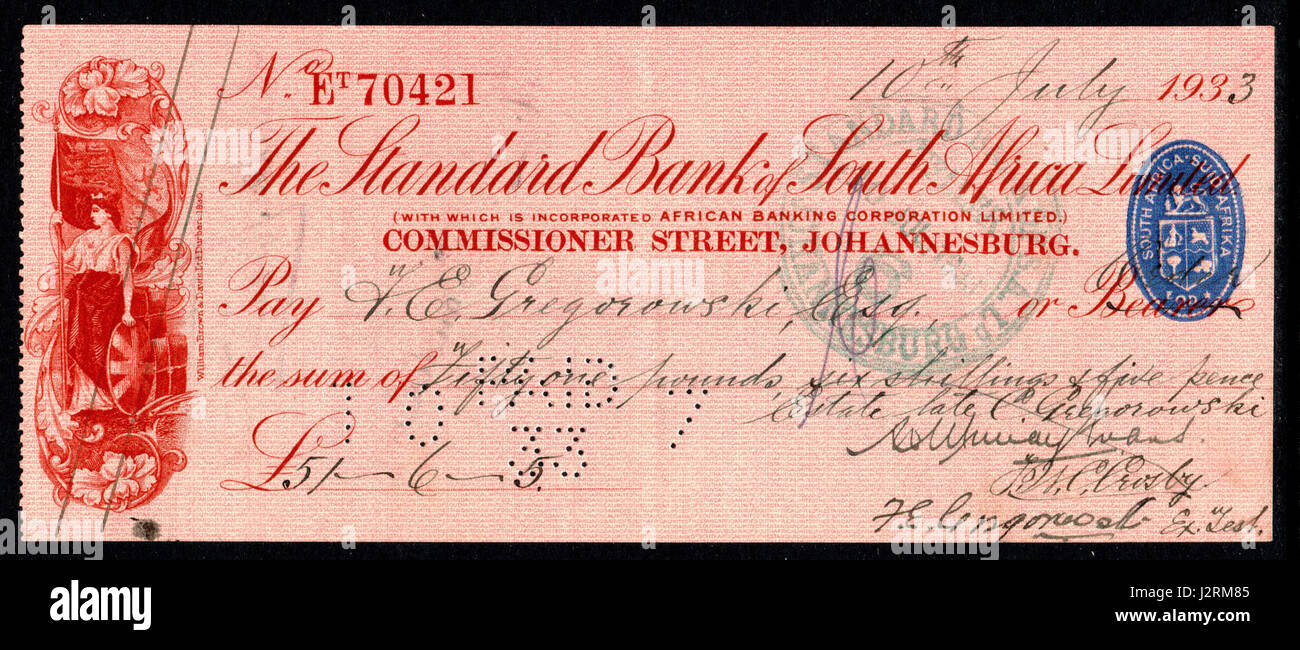 No. ET 70421
10th July 1933
The Standard Bank of South Africa Limited
(WITH WHICH IS INCORPORATED AFRICAN BANKING CORPORATION LIMITED.)
COMMISSIONER STREET, JOHANNESBURG.
SOUTH AFRICA · SUID AFRIKA
Pay F. E. Gregorowski, Esq., or Bearer
Order
the sum of Fifty one pounds, six shillings & five pence
PAID
10 7
33
Estate late C. Gregorowski
£51-6-5.
Crosby.
Ex. Test.
William Brown & Co.
a alamy stock photo
alamy
Image ID: J2RM85
www.alamy.com